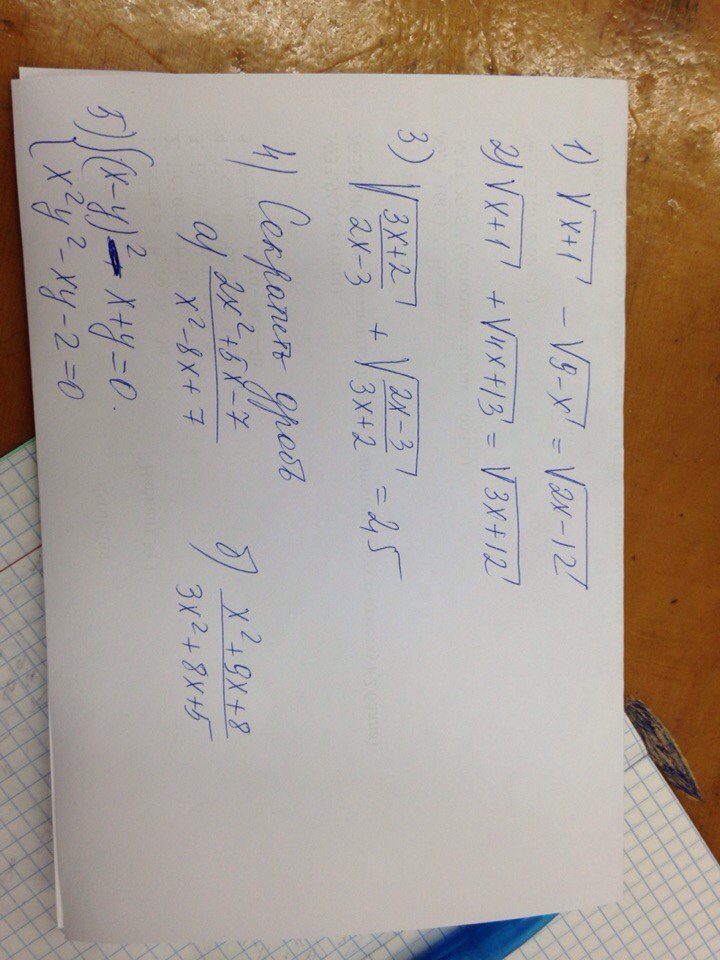 1) √(x+1) - √(9-x) = √(2x-12)
2) √(x+1) + √(4x+13) = √(3x+12)
3) √((3x+2)/(2x-3)) + √((2x-3)/(3x+2)) = 2,5
4) Сократить дробь
а) (2x²+5x-7)/(x²-8x+7) б) (x²+9x+8)/(3x²+8x+5)
5) { (x-y)² - x+y=0.
x²y²-xy-2=0